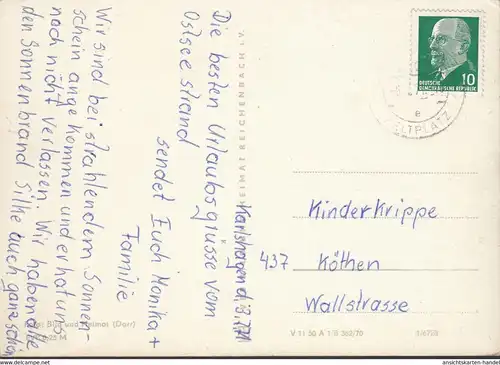 Karlshagen d. 8.7.71
Die besten Urlaubsgrüsse vom
Ostseestrand
sendet Euch Monika +
Familie
Wir sind bei strahlendem Sonnen-
schein angekommen und er hat uns
noch nicht verlassen. Wir haben alle
den Sonnenbrand Silke auch ganz schön
HEIMAT REICHENBACH i. V.
Bild und Heimat (Darr)
V 11 50 A 1/B 562/70
1/6718
10
DEUTSCHE
DEMOKRATISCHE REPUBLIK
ZELTPLATZ
Kinderkrippe
437 Köthen
Wallstrasse
www.ansichtskarten-handel.com